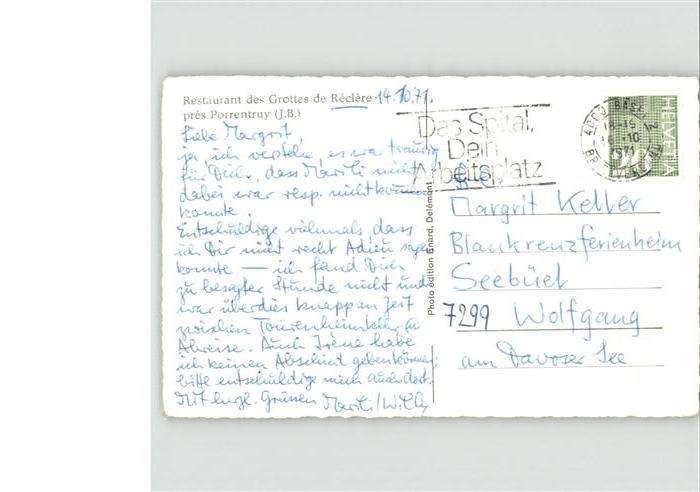 Restaurant des Grottes de Réclère 14.10.71.
près Porrentruy (J.B.)
Liebe Margrit,
ja, ich verstehe, es war traurig
für Dich, dass Marili nicht
dabei war resp. nicht kommen
konnte.
Entschuldige vielmals dass
ich Dir nicht recht Adieu sagen
konnte — ich fand Dich
zu besagter Stunde nicht und
war überdies knapp an Zeit
zwischen Tourenheimkehr &
Abreise. Auch Irène habe
ich keinen Abschied geben können;
bitte entschuldige mich auch dort.
Mit herzl. Grüssen Marili/Willy
Photo édition Enard, Delémont
Das Spital,
Dein
Arbeitsplatz
4000 BASEL
1971
HELVETIA
Margrit Keller
Blaukreuzferienheim
Seebüel
7299 Wolfgang
am Davoser See